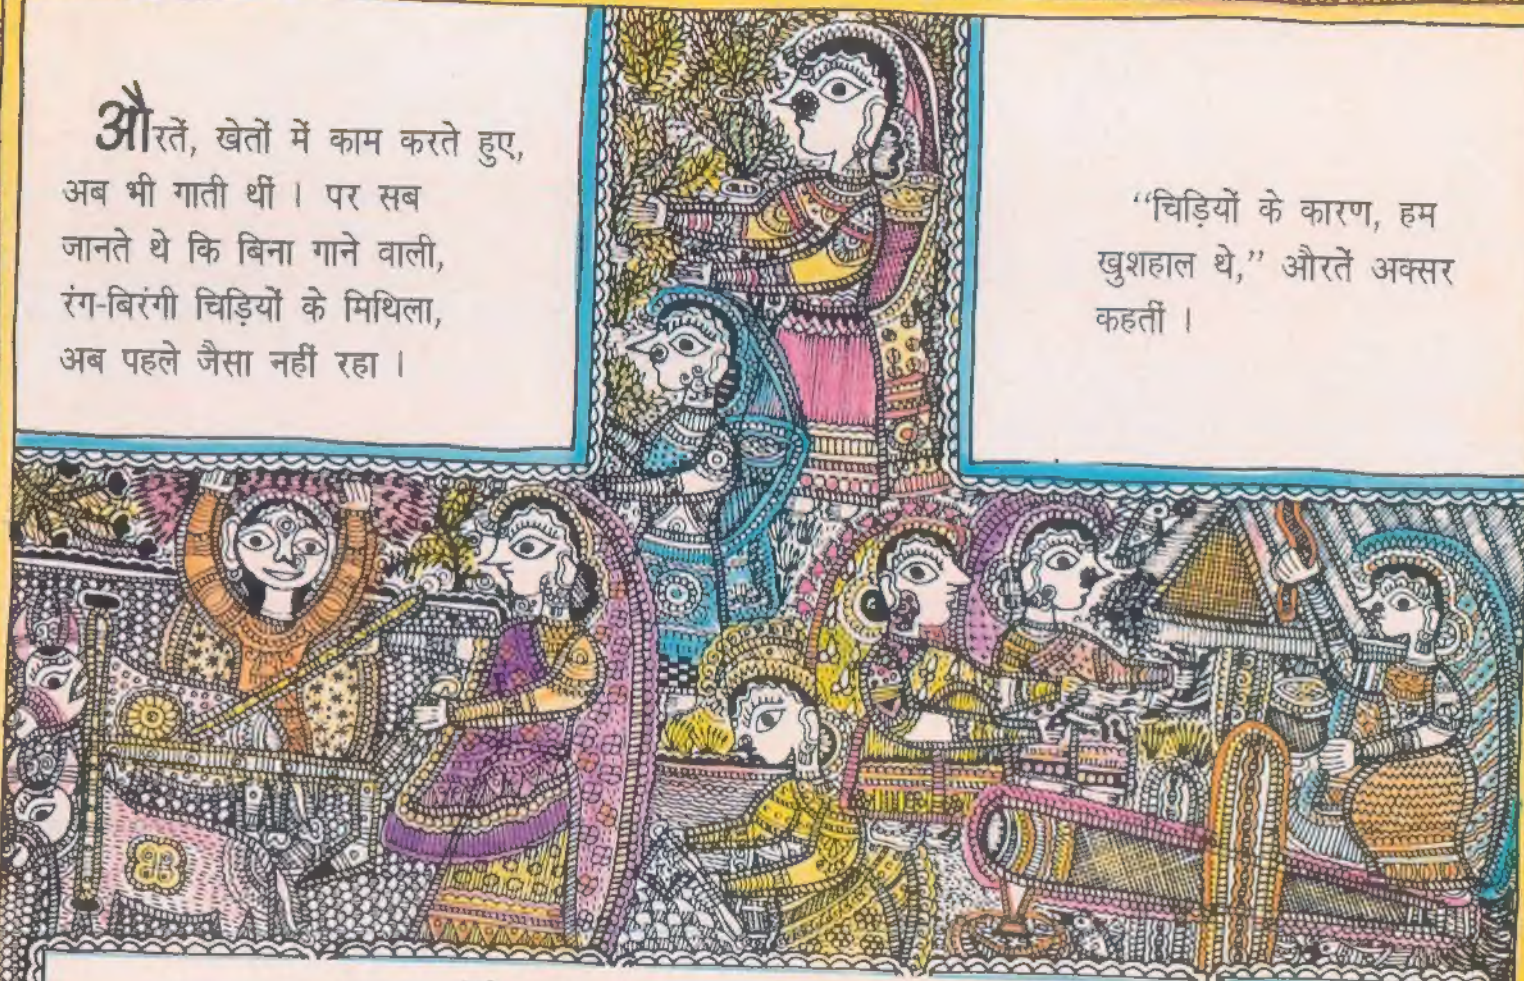 औरतें, खेतों में काम करते हुए,
अब भी गाती थीं । पर सब
जानते थे कि बिना गाने वाली,
रंग-बिरंगी चिड़ियों के मिथिला,
अब पहले जैसा नहीं रहा ।
“चिड़ियों के कारण, हम
खुशहाल थे,” औरतें अक्सर
कहतीं ।